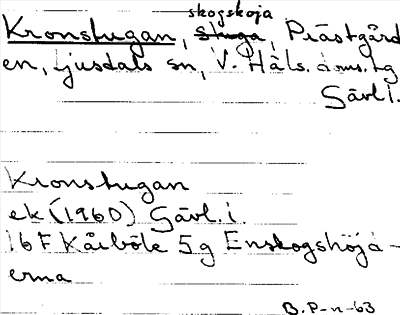 skogskoja
Kronstugan, stuga, Prästgård
en, Ljusdals sn, V. Häls. doms.tg
Gävl l.
Kronstugan
ek (1960) Gävl. l.
16 F Kårböle 5g Enskogshöja-
erna
B.P-n-63